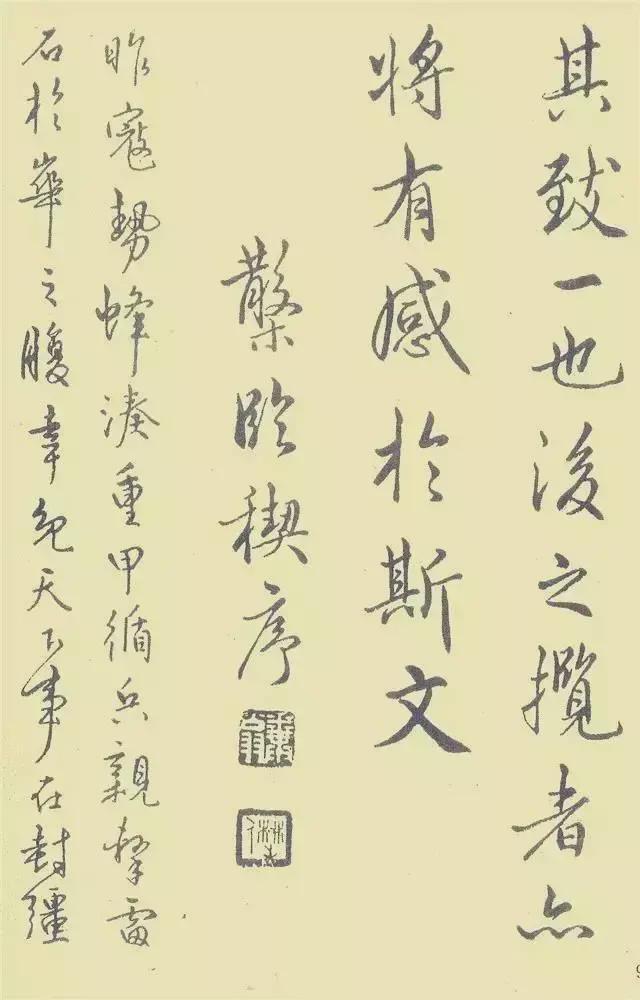 其致一也後之攬者亦
將有感於斯文
槃臨禊序
昨寇勢蜂湊重甲循兵親擊雷
石於華之腹幸免天下事在封疆
9